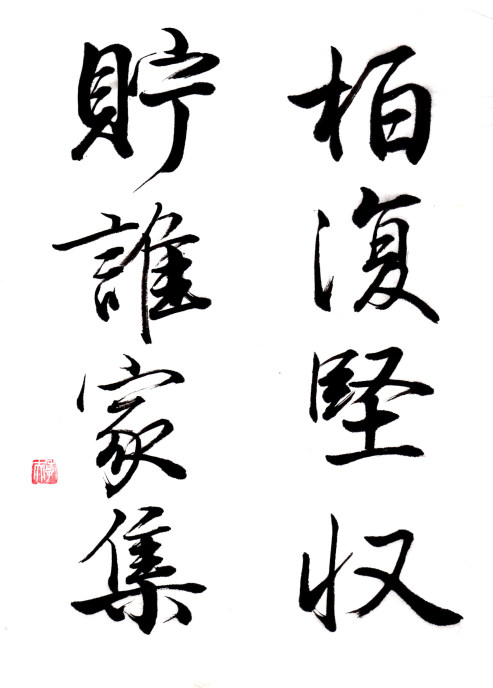 柏復堅収
貯誰家集